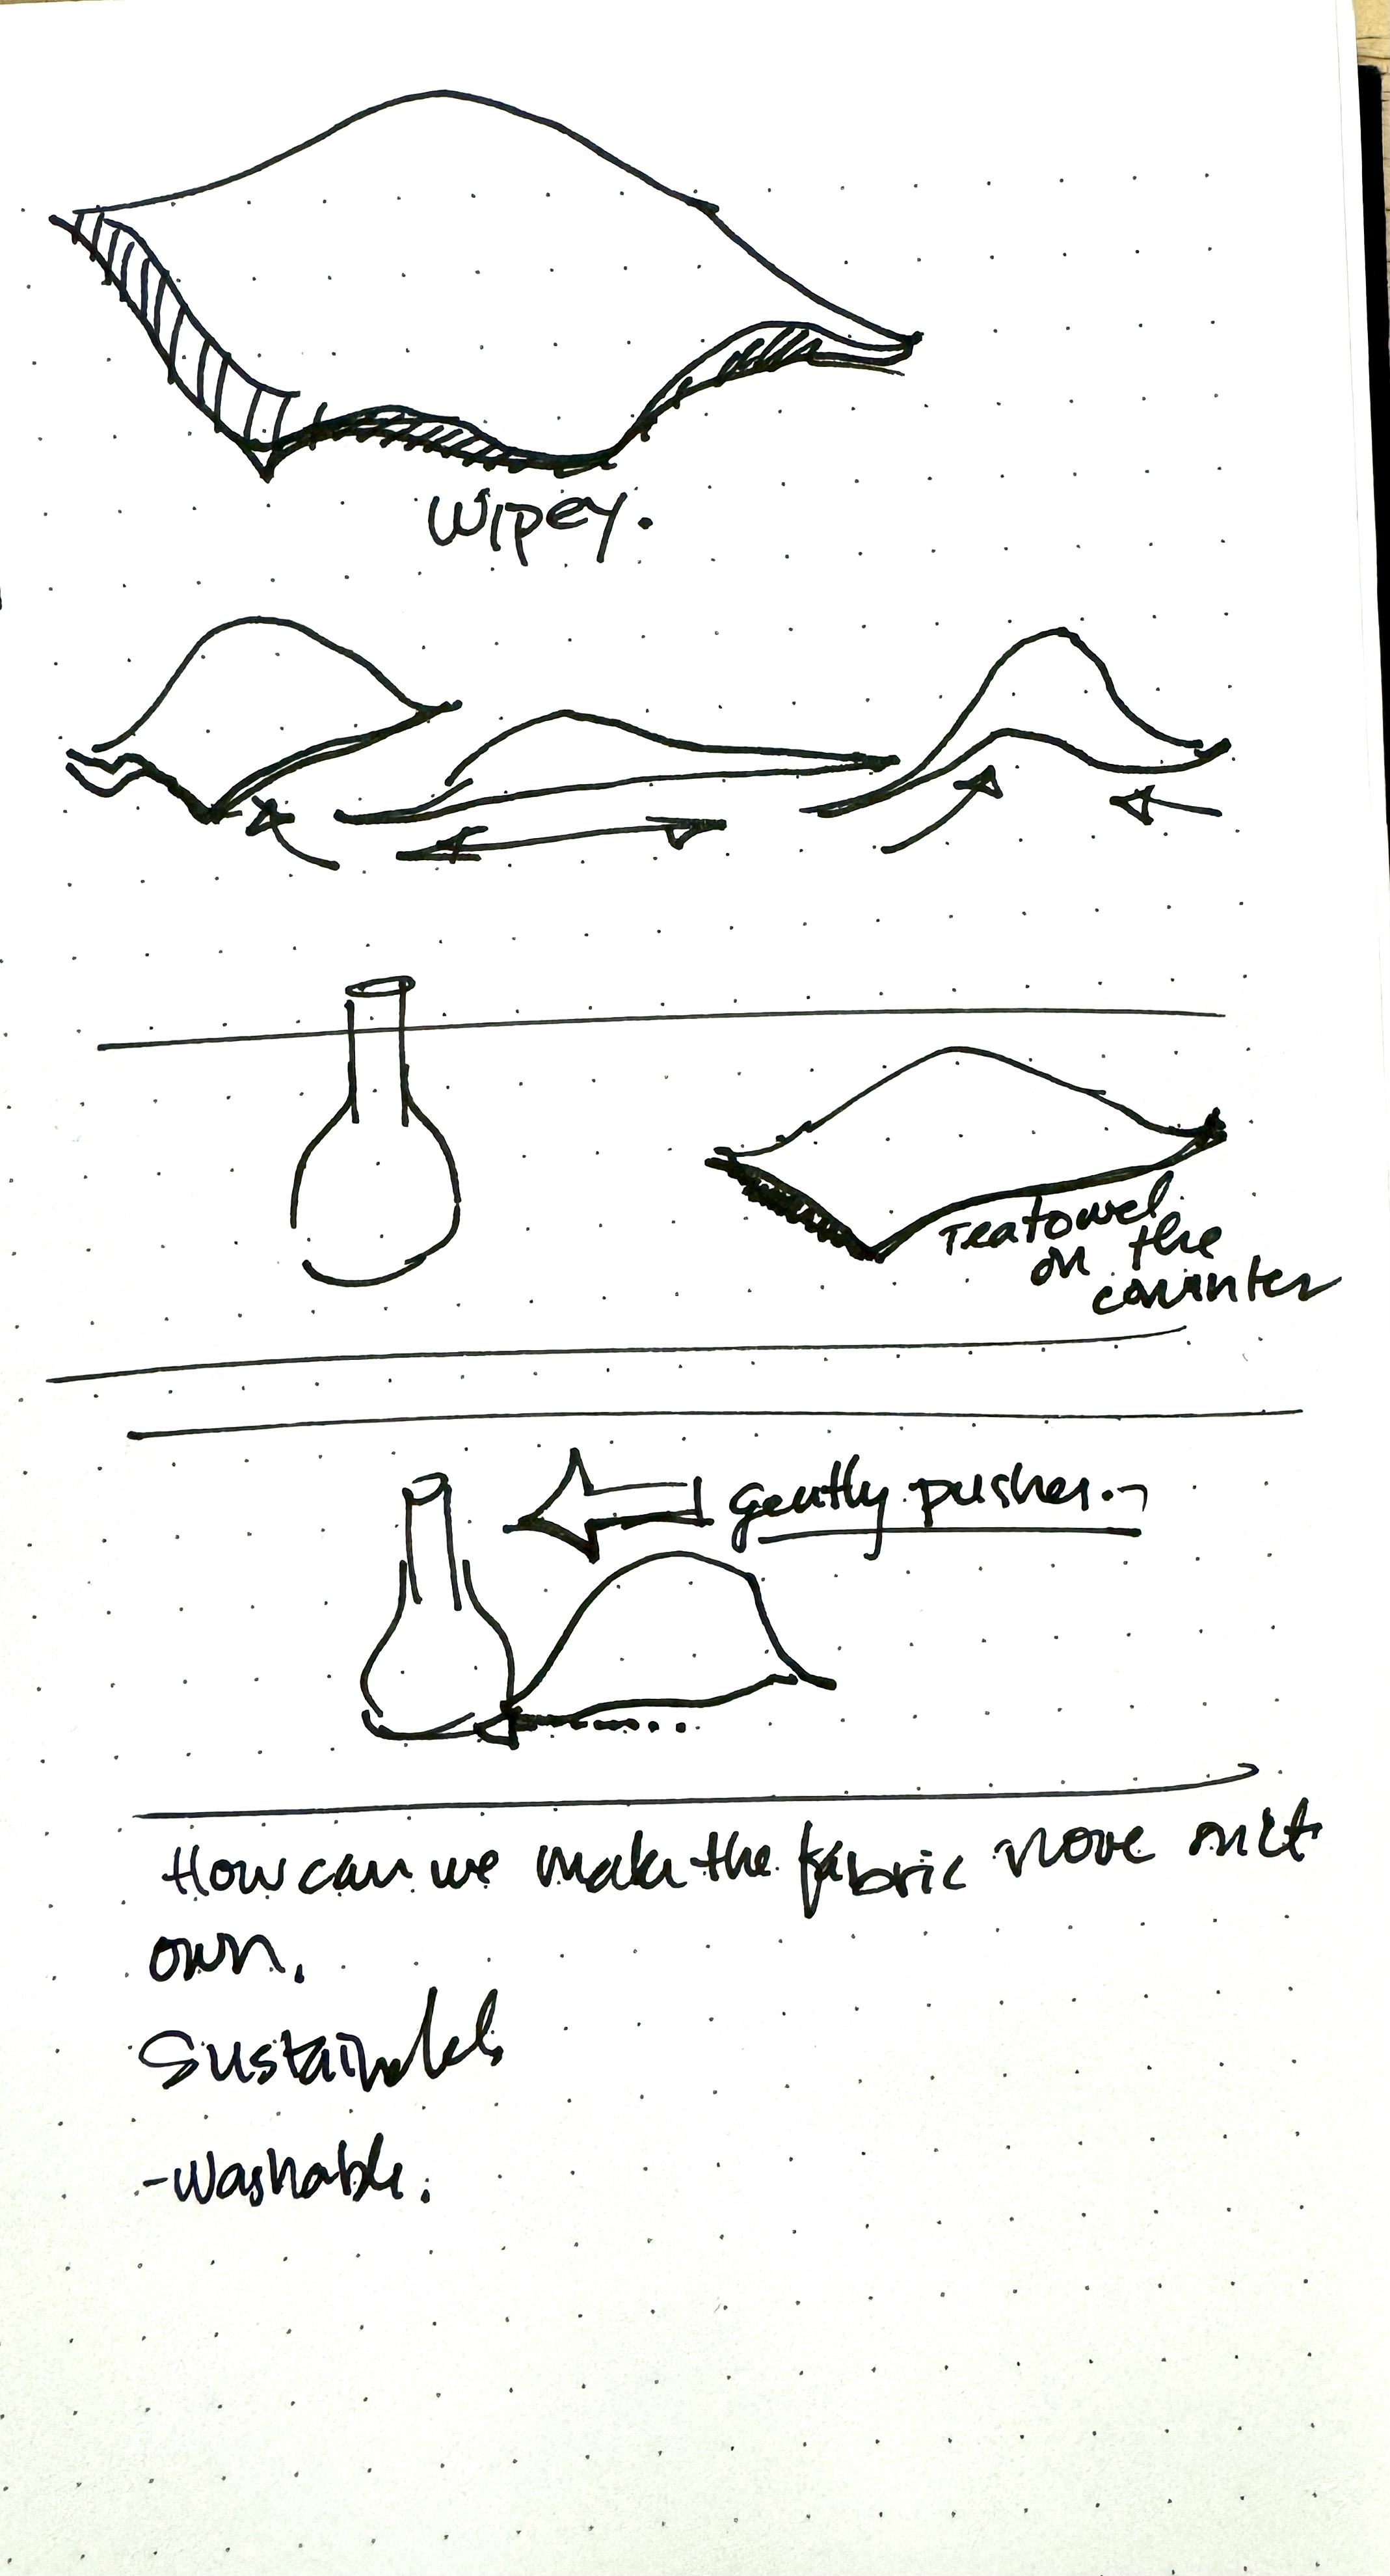 Wipey.
Teatowel
on the
counter
gently pushes.
How can we make the fabric move on it
own.
Sustainable
-Washable.